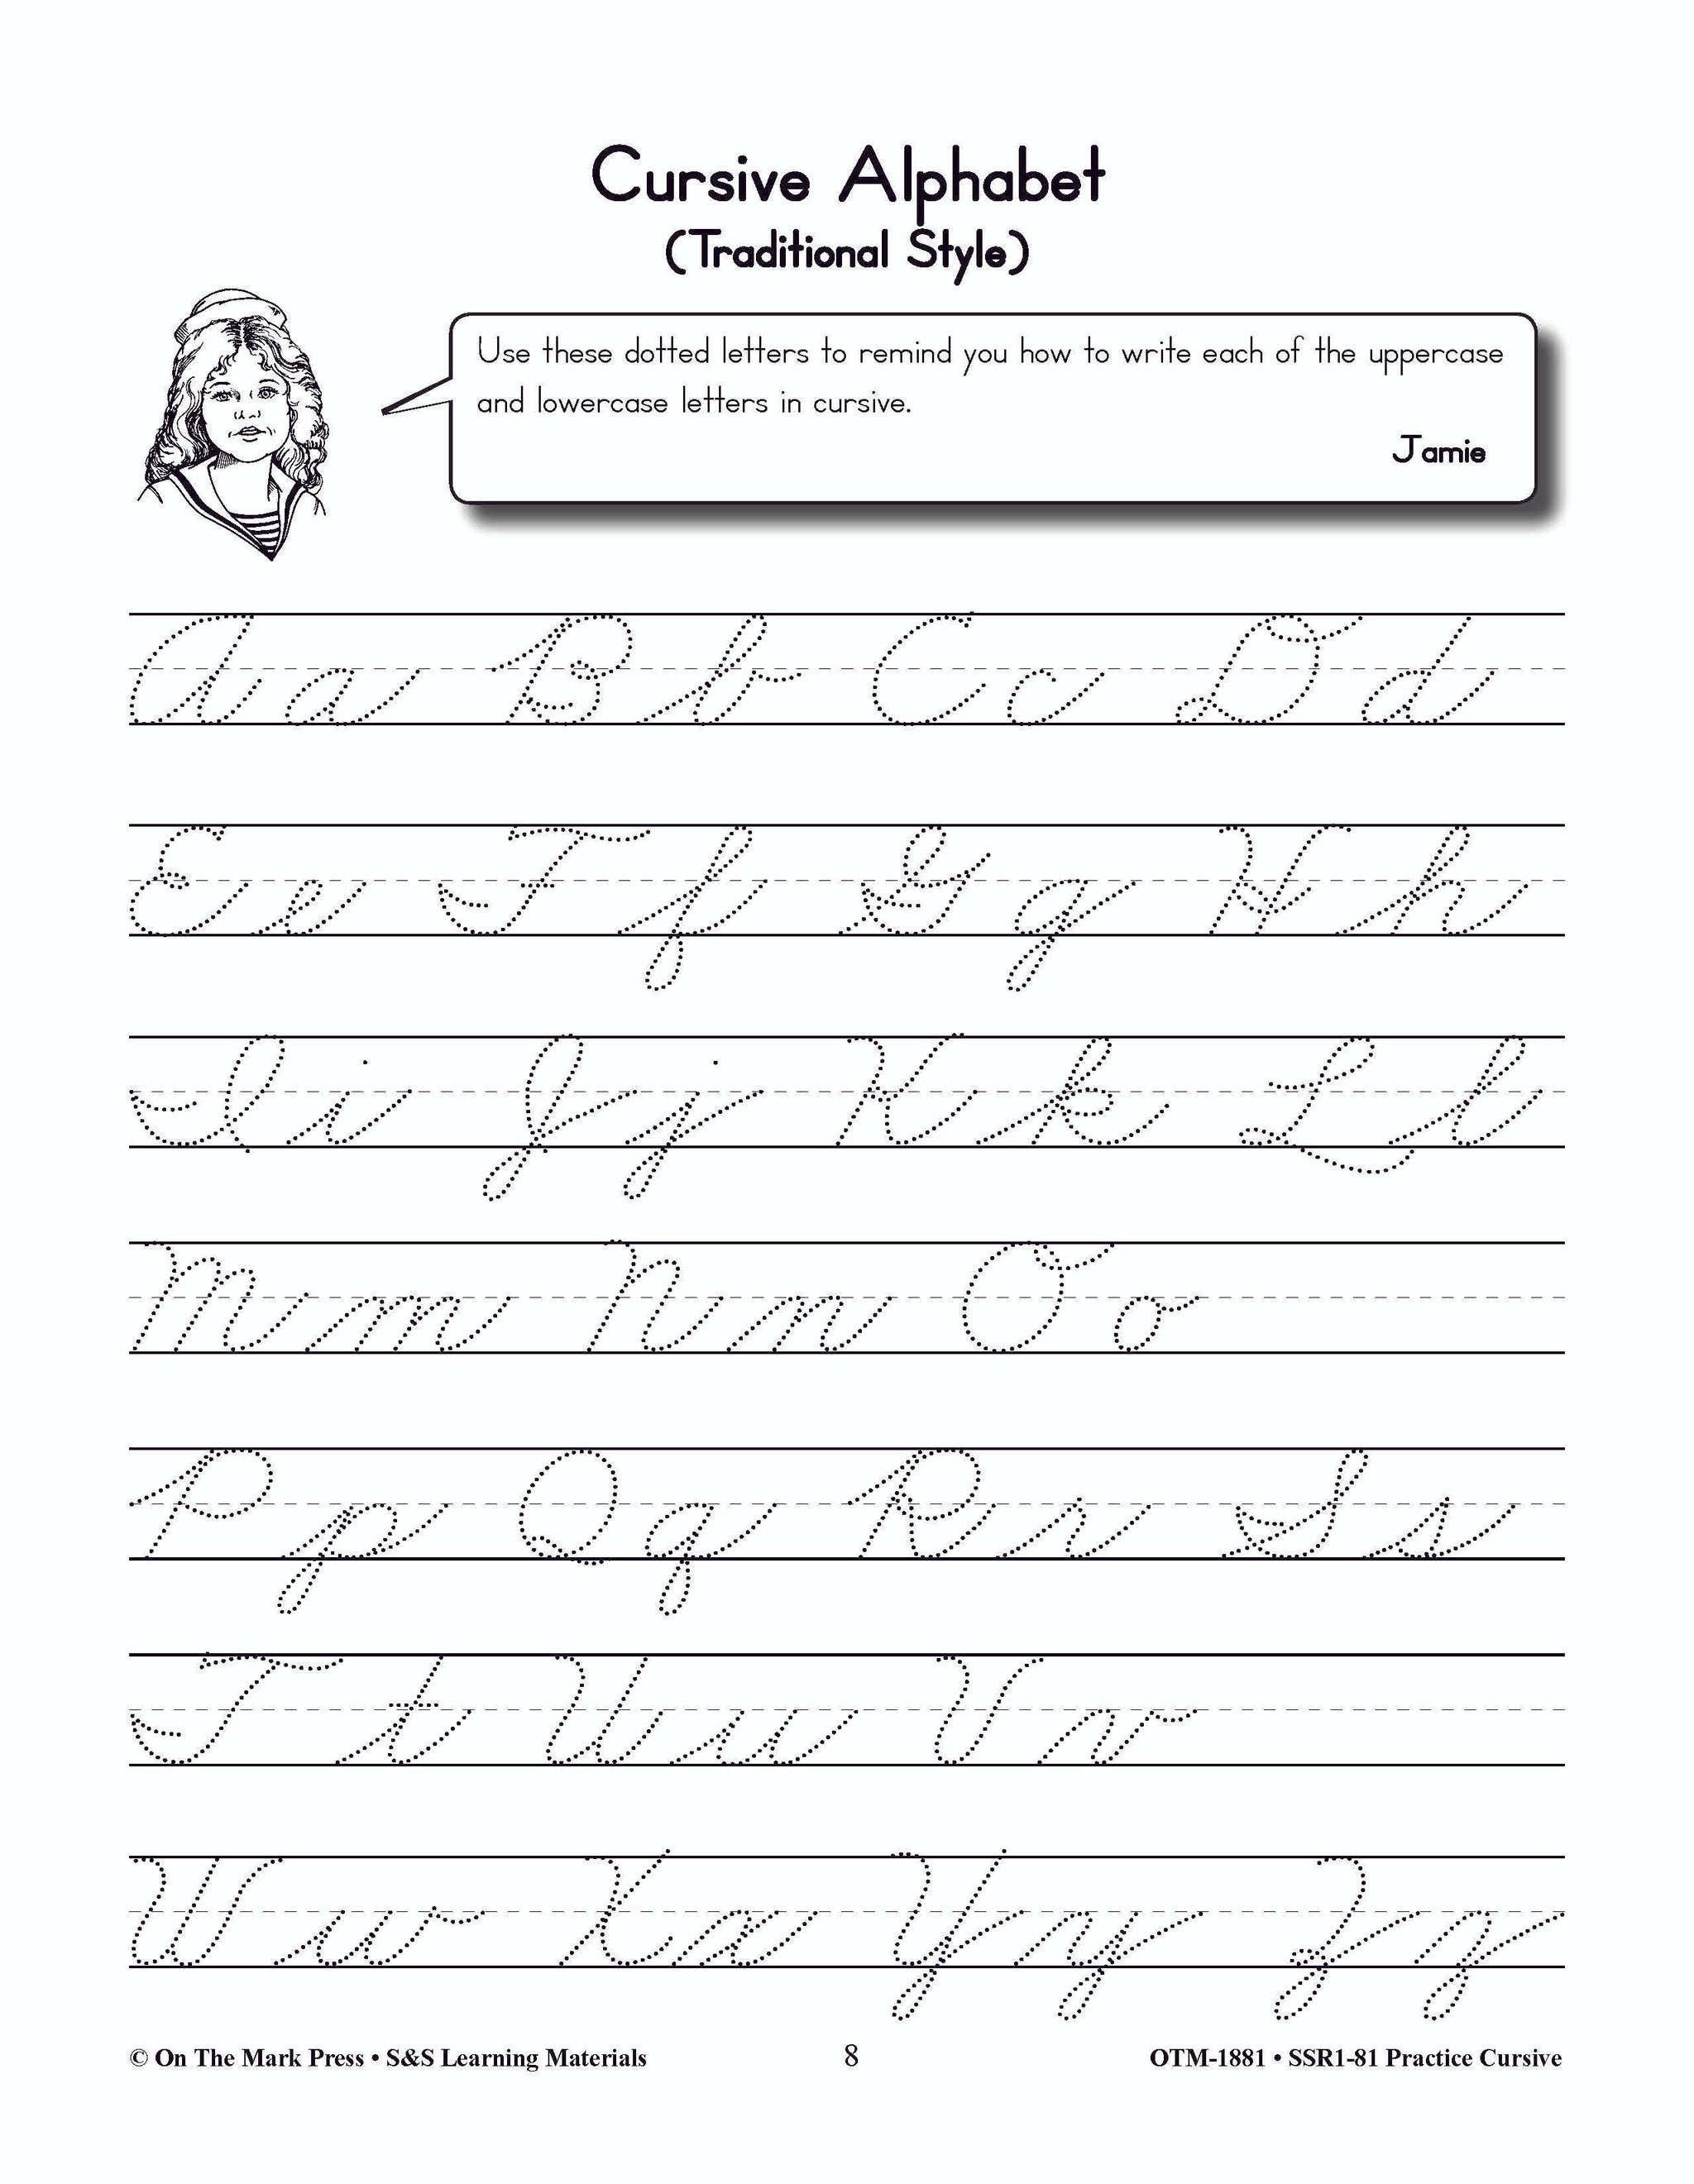 Cursive Alphabet
(Traditional Style)
Use these dotted letters to remind you how to write each of the uppercase
and lowercase letters in cursive.
Jamie
A a B b C c D d
E e F f G g H h
I i J j K k L l
M m N n O o
P p Q q R r S s
T t U u V v
W w X x Y y Z z
© On The Mark Press • S&S Learning Materials 8 OTM-1881 • SSR1-81 Practice Cursive